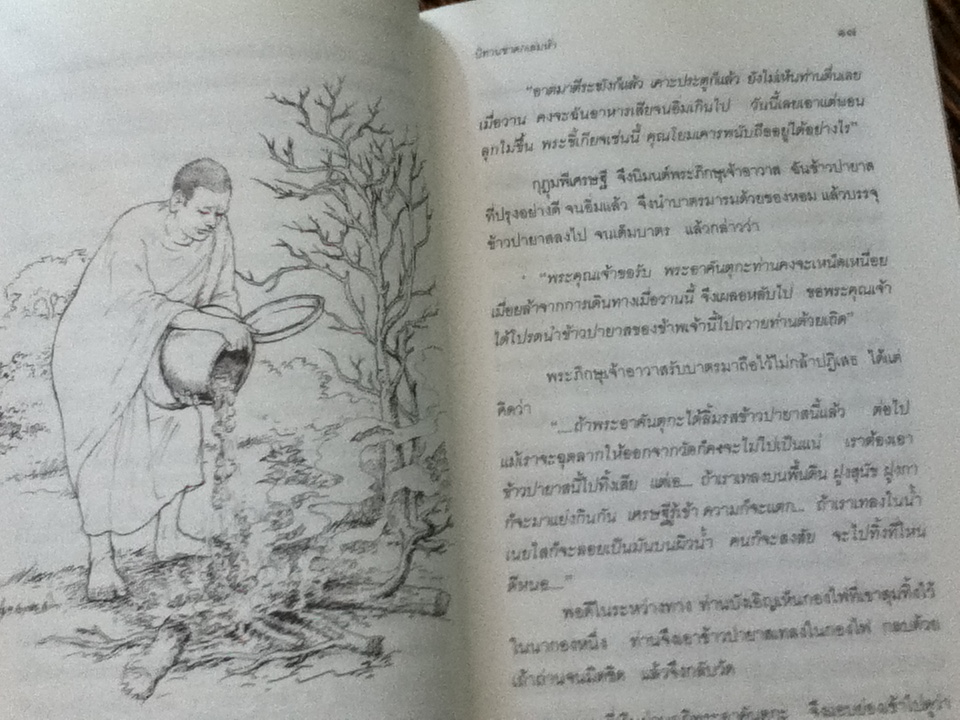 นิทานชาดกเล่มห้า
๑๗
“อาตมาตีระฆังก็แล้ว เคาะประตูก็แล้ว ยังไม่เห็นท่านตื่นเลย
เมื่อวาน คงจะฉันอาหารเสียจนอิ่มเกินไป วันนี้เลยเอาแต่นอน
ลุกไม่ขึ้น พระขี้เกียจเช่นนี้ คุณโยมเคารพนับถืออยู่ได้อย่างไร”
กุฎุมพีเศรษฐี จึงนิมนต์พระภิกษุเจ้าอาวาส ฉันข้าวปายาส
ที่ปรุงอย่างดี จนอิ่มแล้ว จึงนำบาตรมารมด้วยของหอม แล้วบรรจุ
ข้าวปายาสลงไป จนเต็มบาตร แล้วกล่าวว่า
“พระคุณเจ้าขอรับ พระอาคันตุกะท่านคงจะเหน็ดเหนื่อย
เมื่อยล้าจากการเดินทางเมื่อวานนี้ จึงเผลอหลับไป ขอพระคุณเจ้า
ได้โปรดนำข้าวปายาสของข้าพเจ้านี้ไปถวายท่านด้วยเถิด”
พระภิกษุเจ้าอาวาสรับบาตรมาถือไว้ไม่กล้าปฏิเสธ ได้แต่
คิดว่า
“....ถ้าพระอาคันตุกะได้ลิ้มรสข้าวปายาสนี้แล้ว ต่อไป
แม้เราจะฉุดลากให้ออกจากวัดก็คงจะไม่ไปเป็นแน่ เราต้องเอา
ข้าวปายาสนี้ไปทิ้งเสีย แต่เอ... ถ้าเราเทลงบนพื้นดิน ฝูงสุนัข ฝูงกา
ก็จะมาแย่งกินกัน เศรษฐีรู้เข้า ความก็จะแตก... ถ้าเราเทลงในน้ำ
เนยใสก็จะลอยเป็นมันบนผิวน้ำ คนก็จะสงสัย จะไปทิ้งที่ไหน
ดีหนอ....”
พอดีในระหว่างทาง ท่านบังเอิญเห็นกองไฟที่เขาสุมทิ้งไว้
ในนากองหนึ่ง ท่านจึงเอาข้าวปายาสเทลงในกองไฟ กลบด้วย
เถ้าถ่านจนมิดชิด แล้วจึงกลับวัด